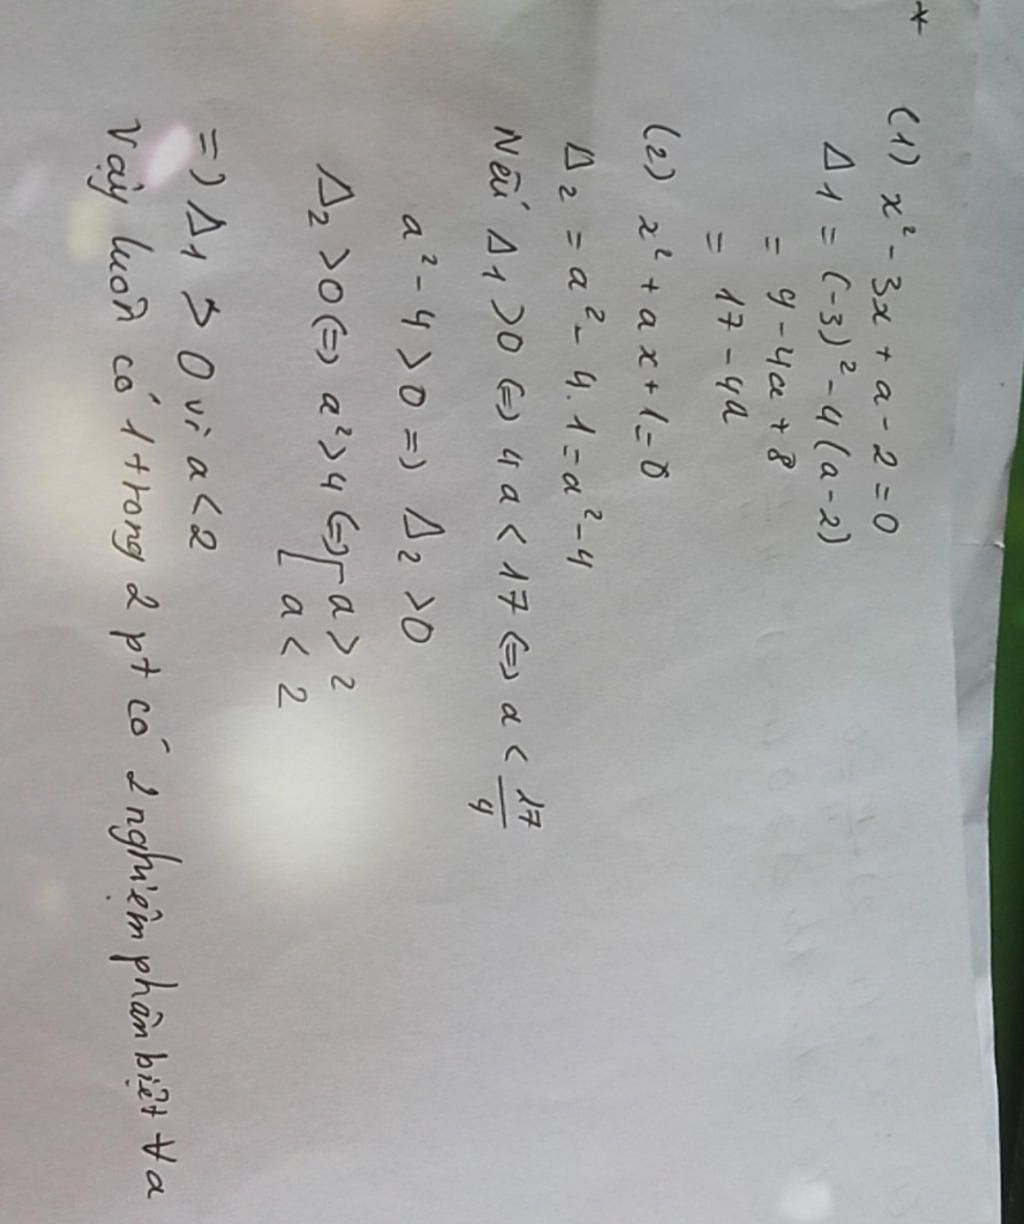 *
(1) x² - 3x + a - 2 = 0
Δ1 = (-3)² - 4(a-2)
= 9 - 4a + 8
= 17 - 4a
(2) x² + ax + 1 = 0
Δ2 = a² - 4.1 = a² - 4
Nếu Δ1 > 0 (=) 4a < 17 (=) a < 17/4
a² - 4 > 0 =) Δ2 > 0
Δ2 > 0 (=) a² > 4 (=) [ a > 2
a < 2
=) Δ1 > 0 vì a < 2
Vậy luôn có 1 trong 2 pt có 2 nghiệm phân biệt ∀a